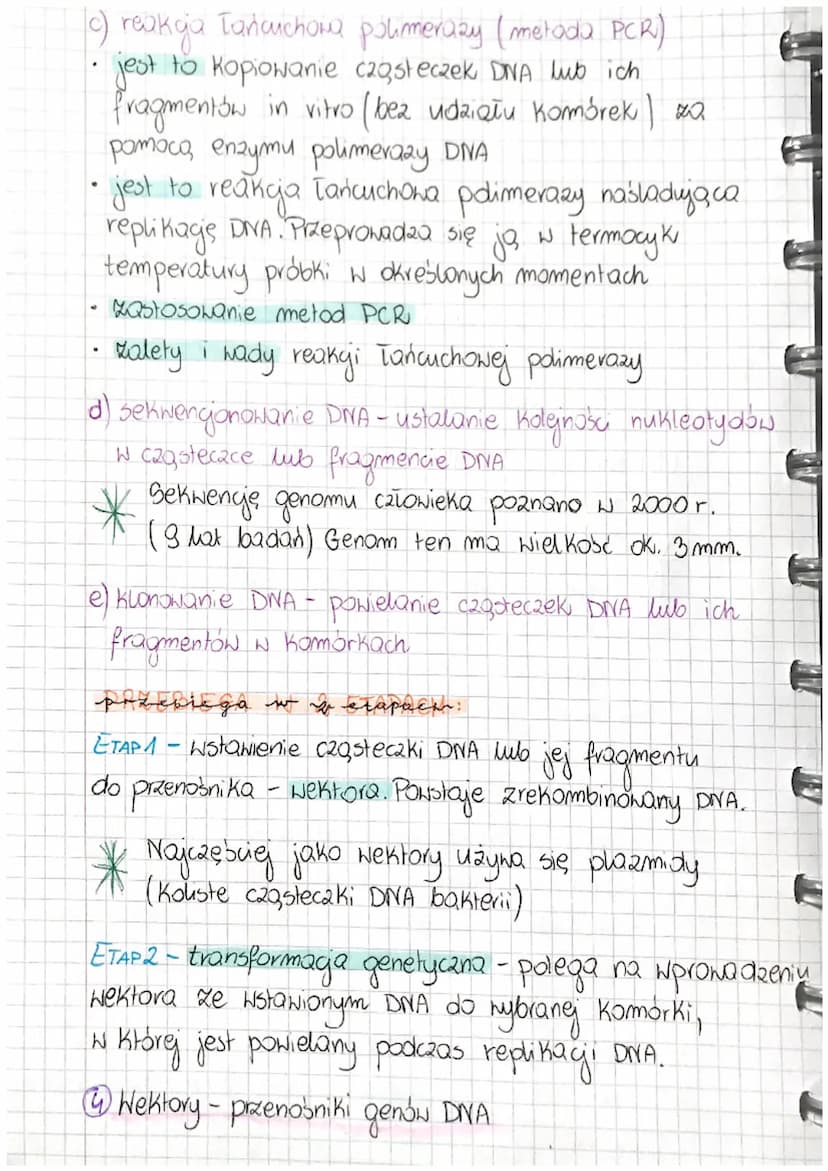 c) reakcja łańcuchowa polimerazy (metoda PCR)
• jest to kopiowanie cząsteczek DNA lub ich
fragmentów in vitro (bez udziału komórek) za
pomocą enzymu polimerazy DNA
• jest to reakcja łańcuchowa polimerazy naśladująca
replikację DNA. Przeprowadza się ją w termocyk
temperatury próbki w określonych momentach
• zastosowanie metod PCR
• zalety i wady reakcji łańcuchowej polimerazy
d) sekwencjonowanie DNA - ustalanie kolejności nukleotydów
w cząsteczce lub fragmencie DNA
Sekwencję genomu człowieka poznano w 2000 r.
(9 lat badań) Genom ten ma wielkość ok. 3 mm.
e) klonowanie DNA - powielanie cząsteczek DNA lub ich
fragmentów w komórkach
przebiega w 2 etapach:
ETAP 1 - wstawienie cząsteczki DNA lub jej fragmentu
do przenośnika - wektora. Powstaje zrekombinowany DNA.
Najczęściej jako wektory używa się plazmidy
(koliste cząsteczki DNA bakterii)
ETAP 2 - transformacja genetyczna - polega na wprowadzeniu
wektora ze wstawionym DNA do wybranej komórki,
w której jest powielany podczas replikacji DNA.
4 Wektory - przenośniki genów DNA